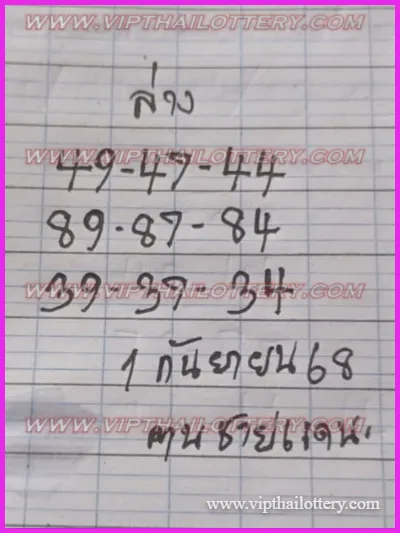 WWW.VIPTHAILOTTERY.COM
ล่าง
WWW.VIPTHAILOTTERY.COM
49-47-44
89-87-84
39-37-34
WWW.VIPTHAILOTTERY.COM
1 กันยายน 68
WWW.VIPTHAILOTTERY.COM
ชายแดน
www.vipthailottery.com